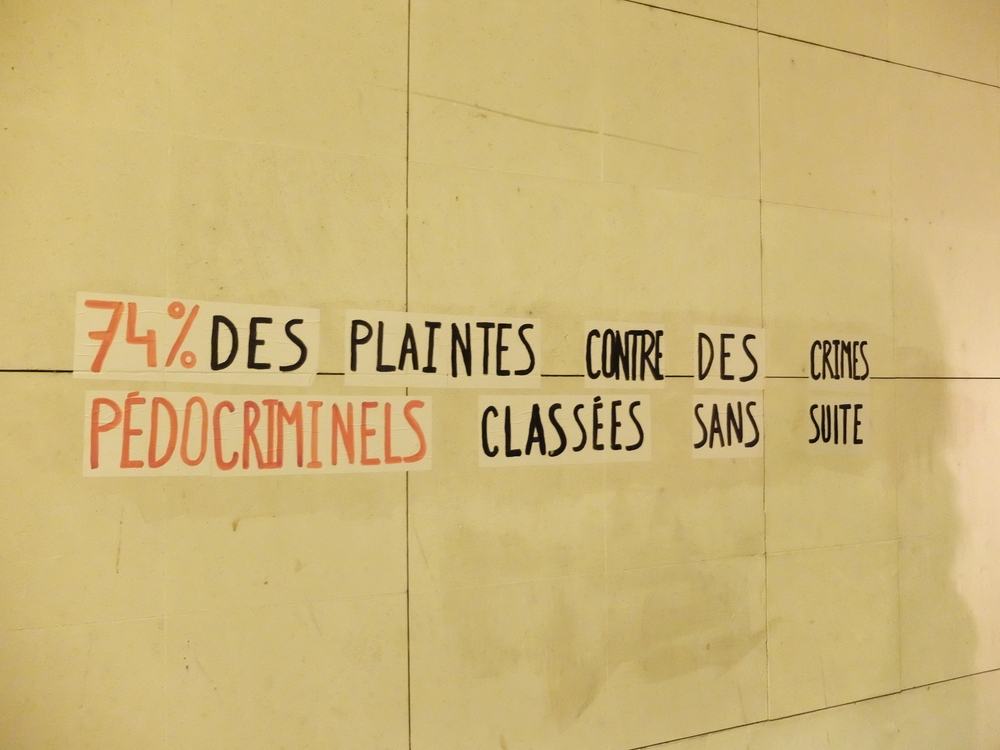 74% DES PLAINTES CONTRE DES CRIMES
PÉDOCRIMINELS CLASSÉES SANS SUITE